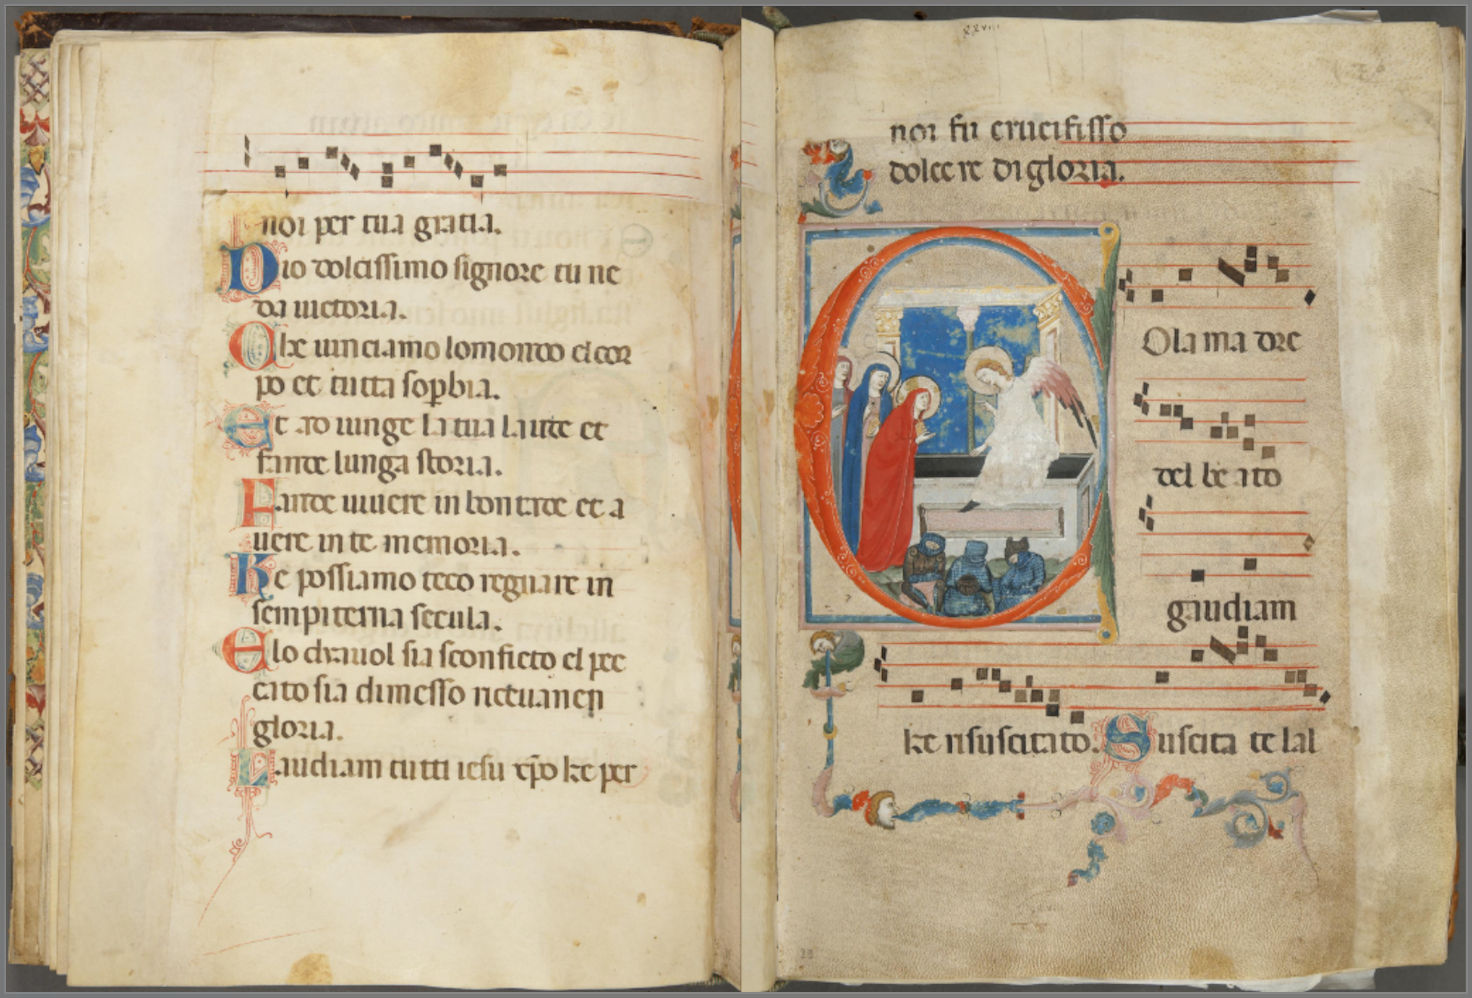 noi per tua gratia.
Dio dolcissimo signore tu ne
da uictoria.
Che uinciamo lomondo el cor
po et tutta sopbia.
et .to iunge la tua laude et
fande lunga storia.
Fande uiuere in bontade et a
uere in te memoria.
Ke possiamo teco regnare in
sempiterna secula.
Elo diauol sia sconficto el pec
cato sia dimesso riceuanen
gloria.
Laudiam tutti iesu xp̄o ke per
xxviii
noi fu crucifisso
dolce re di gloria.
Ola madre
del beato
gaudiam
ke risuscitato. Suscita te lal
28